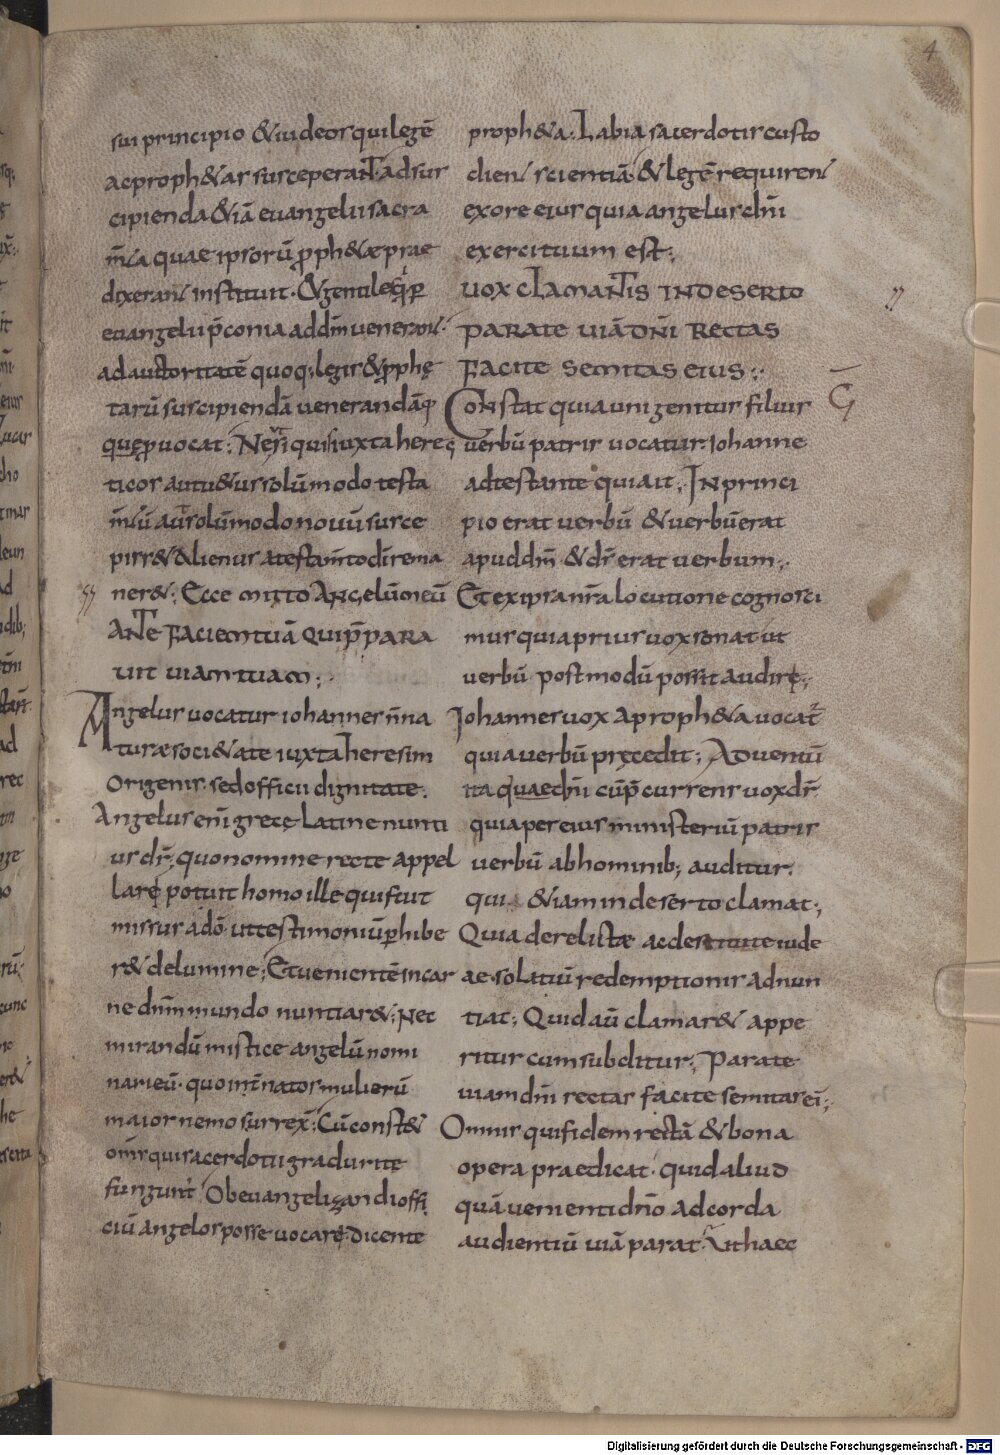 4
sui principio & iudeos qui legē
ac proph&as susceperaNT ad sus
cipienda &iā euangelii sacra
m̄ta quae ipsorū ꝓph&ae prae
dixerant instituit. & gentiles q̇ ꝑ
euangelii p̄conia ad dn̄m uenerant.
ad auctoritatē quoq; legis & ꝓphę
tarū suscipiendā uenerandāq;
quęꝓuocat; Ne si quis iuxta here
ticos aut u&us solūmodo testa
m̄tū aut solūmodo nouū susce
piss& alienus a testam̄to dī rema
ner&; Ecce mitto ANgelū meū
ANTE FACIEM TUĀ QUI P̄PARA
UIT UIAM TUAM;
Angelus uocatur iohannes ñ na
turae soci&ate iuxta heresim
Origenis. sed officii dignitate.
Angelus eni grece. Latine nunti
us dr̄; quo nomine recte appel
larę potuit homo ille qui fuit
missus a dō. ut testimoniū ꝑhibe
r& de lumine; Et uenientē in car
ne dn̄m mundo nuntiar&; Nec
mirandū mistice angelū nomi
nari eū. quo int̄ natos mulierū
maior nemo surrex̄; Cū const&
om̄s qui sacerdotii gradu rite
fungunt̄ Ob euangelizandi offi
ciū angelos posse uocarę. dicente
proph&a; Labia sacerdotis custo
dient scientiā. & legē requirent
ex ore eius quia angelus dn̄i
exercituum est;
UOX CLAMANTIS IN DESERTO
PARATE UIĀ DN̄I RECTAS
FACITE SEMITAS EIUS;
Constat quia unigenitus filius
uerbū patris uocatur. Iohanne
adtestante qui ait; IN princi
pio erat uerbū & uerbū erat
apud dm̄ & ds̄ erat uerbum;
Et ex ipsa nr̄a locutione cognosci
mus quia prius uox sonat ut
uerbū postmodū possit audirę;
Iohannes uox a proph&a uocat̄
quia uerbū pręcedit; Aduentū
itaquae dn̄i cū p̄currens uox dr̄.
quia per eius ministeriū patris
uerbū ab hominib; auditur.
qui &iam in deserto clamat;
Quia derelictae ac destitute iude
ae. solatiū redemptionis adnun
tiat; Quid aū clamar& appe
ritur cum subditur; Parate
uiam dn̄i rectas facite semitas ei';
Omnis qui fidem rectā & bona
opera praedicat. quid aliud
quā uenienti dn̄o ad corda
audientiū uiā parat. Ut haec
Digitalisierung gefördert durch die Deutsche Forschungsgemeinschaft - DFG